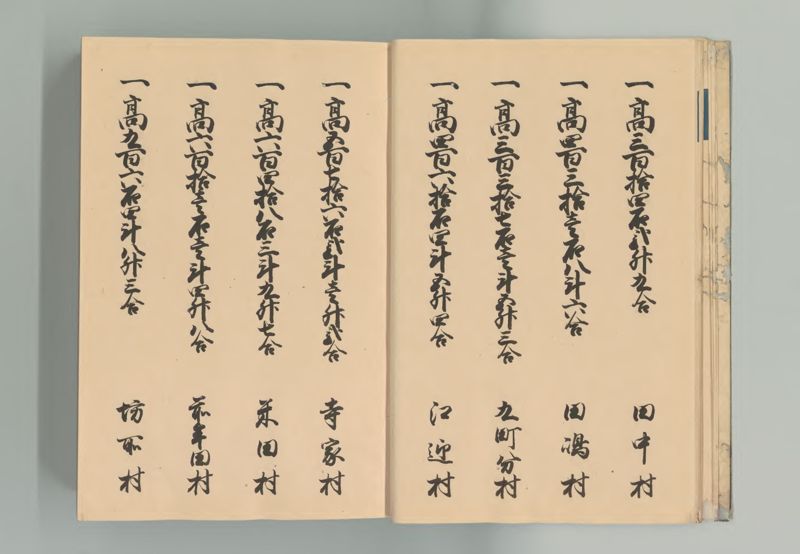 一高三百拾四石弐升九合 田中村
一高四百三拾壱石八斗六合 田嶋村
一高三百三拾七石壱斗五升三合 五町分村
一高四百六拾石四斗五升四合 江迎村
一高五百七拾六石弐斗壱升弐合 寺家村
一高六百四拾八石三斗九升七合 米田村
一高六百拾壱石壱斗四升八合 前牟田村
一高九百六石四斗八升三合 坊所村